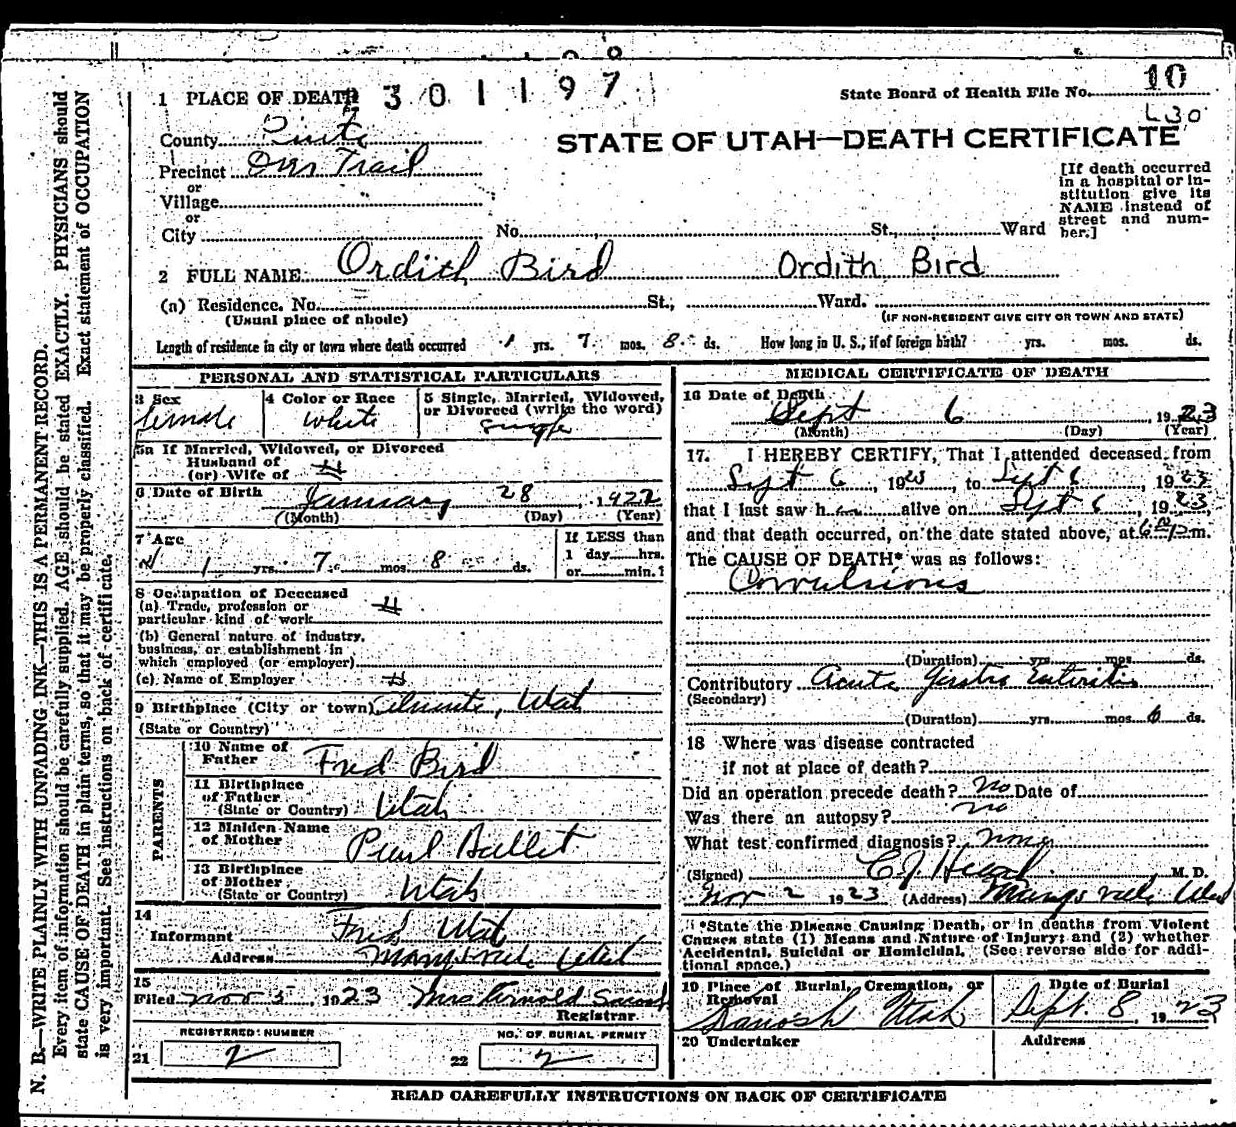 10
301197
State Board of Health File No. 10
L30
1 PLACE OF DEATH
STATE OF UTAH—DEATH CERTIFICATE
County Piute
Precinct Trail
or
Village
or
City No. St., Ward
[If death occurred
in a hospital or in-
stitution give its
NAME instead of
street and num-
ber.]
2 FULL NAME Ordith Bird Ordith Bird
(a) Residence. No. St., Ward.
(Usual place of abode) (IF NON-RESIDENT GIVE CITY OR TOWN AND STATE)
Length of residence in city or town where death occurred 1 yrs. 7 mos. 8 ds. How long in U. S., if of foreign birth? yrs. mos. ds.
PERSONAL AND STATISTICAL PARTICULARS
3 Sex female
4 Color or Race White
5 Single, Married, Widowed,
or Divorced (write the word)
single
5a If Married, Widowed, or Divorced
Husband of
(or) Wife of
6 Date of Birth January 28, 1922
(Month) (Day) (Year)
7 Age 1 yrs. 7 mos. 8 ds.
If LESS than
1 day hrs.
or min.?
8 Occupation of Deceased
(a) Trade, profession or
particular kind of work
(b) General nature of industry,
business, or establishment in
which employed (or employer)
(c) Name of Employer
9 Birthplace (City or town) Utah
(State or Country)
PARENTS
10 Name of
Father Fred Bird
11 Birthplace
of Father
(State or Country) Utah
12 Maiden Name
of Mother Pearl
13 Birthplace
of Mother
(State or Country) Utah
14
Informant Fred Utah
Address Marysvale Utah
15
Filed Nov 5, 1923 Mrs
Registrar.
REGISTERED NUMBER
21 2
NO. OF BURIAL PERMIT
22 2
MEDICAL CERTIFICATE OF DEATH
16 Date of Death
Sept 6 1923
(Month) (Day) (Year)
17. I HEREBY CERTIFY, That I attended deceased from
Sept 6, 1923, to Sept 6, 1923
that I last saw h alive on Sept 6, 1923,
and that death occurred, on the date stated above, at 6 p m.
The CAUSE OF DEATH* was as follows:
Convulsions
(Duration) yrs. mos. ds.
Contributory Acute Gastro Enteritis
(Secondary)
(Duration) yrs. mos. 6 ds.
18 Where was disease contracted
if not at place of death?
Did an operation precede death? no Date of
Was there an autopsy? no
What test confirmed diagnosis? none
(Signed) C. J. M. D.
Nov 2 1923 (Address) Marysvale Utah
*State the Disease Causing Death, or in deaths from Violent
Causes state (1) Means and Nature of Injury; and (2) whether
Accidental, Suicidal or Homicidal. (See reverse side for addi-
tional space.)
19 Place of Burial, Cremation, or
Removal
Kanosh Utah
Date of Burial
Sept. 8, 1923
20 Undertaker
Address
READ CAREFULLY INSTRUCTIONS ON BACK OF CERTIFICATE
N. B.—WRITE PLAINLY WITH UNFADING INK—THIS IS A PERMANENT RECORD.
Every item of information should be carefully supplied. AGE should be stated EXACTLY. PHYSICIANS should
state CAUSE OF DEATH in plain terms, so that it may be properly classified. Exact statement of OCCUPATION
is very important. See instructions on back of certificate.